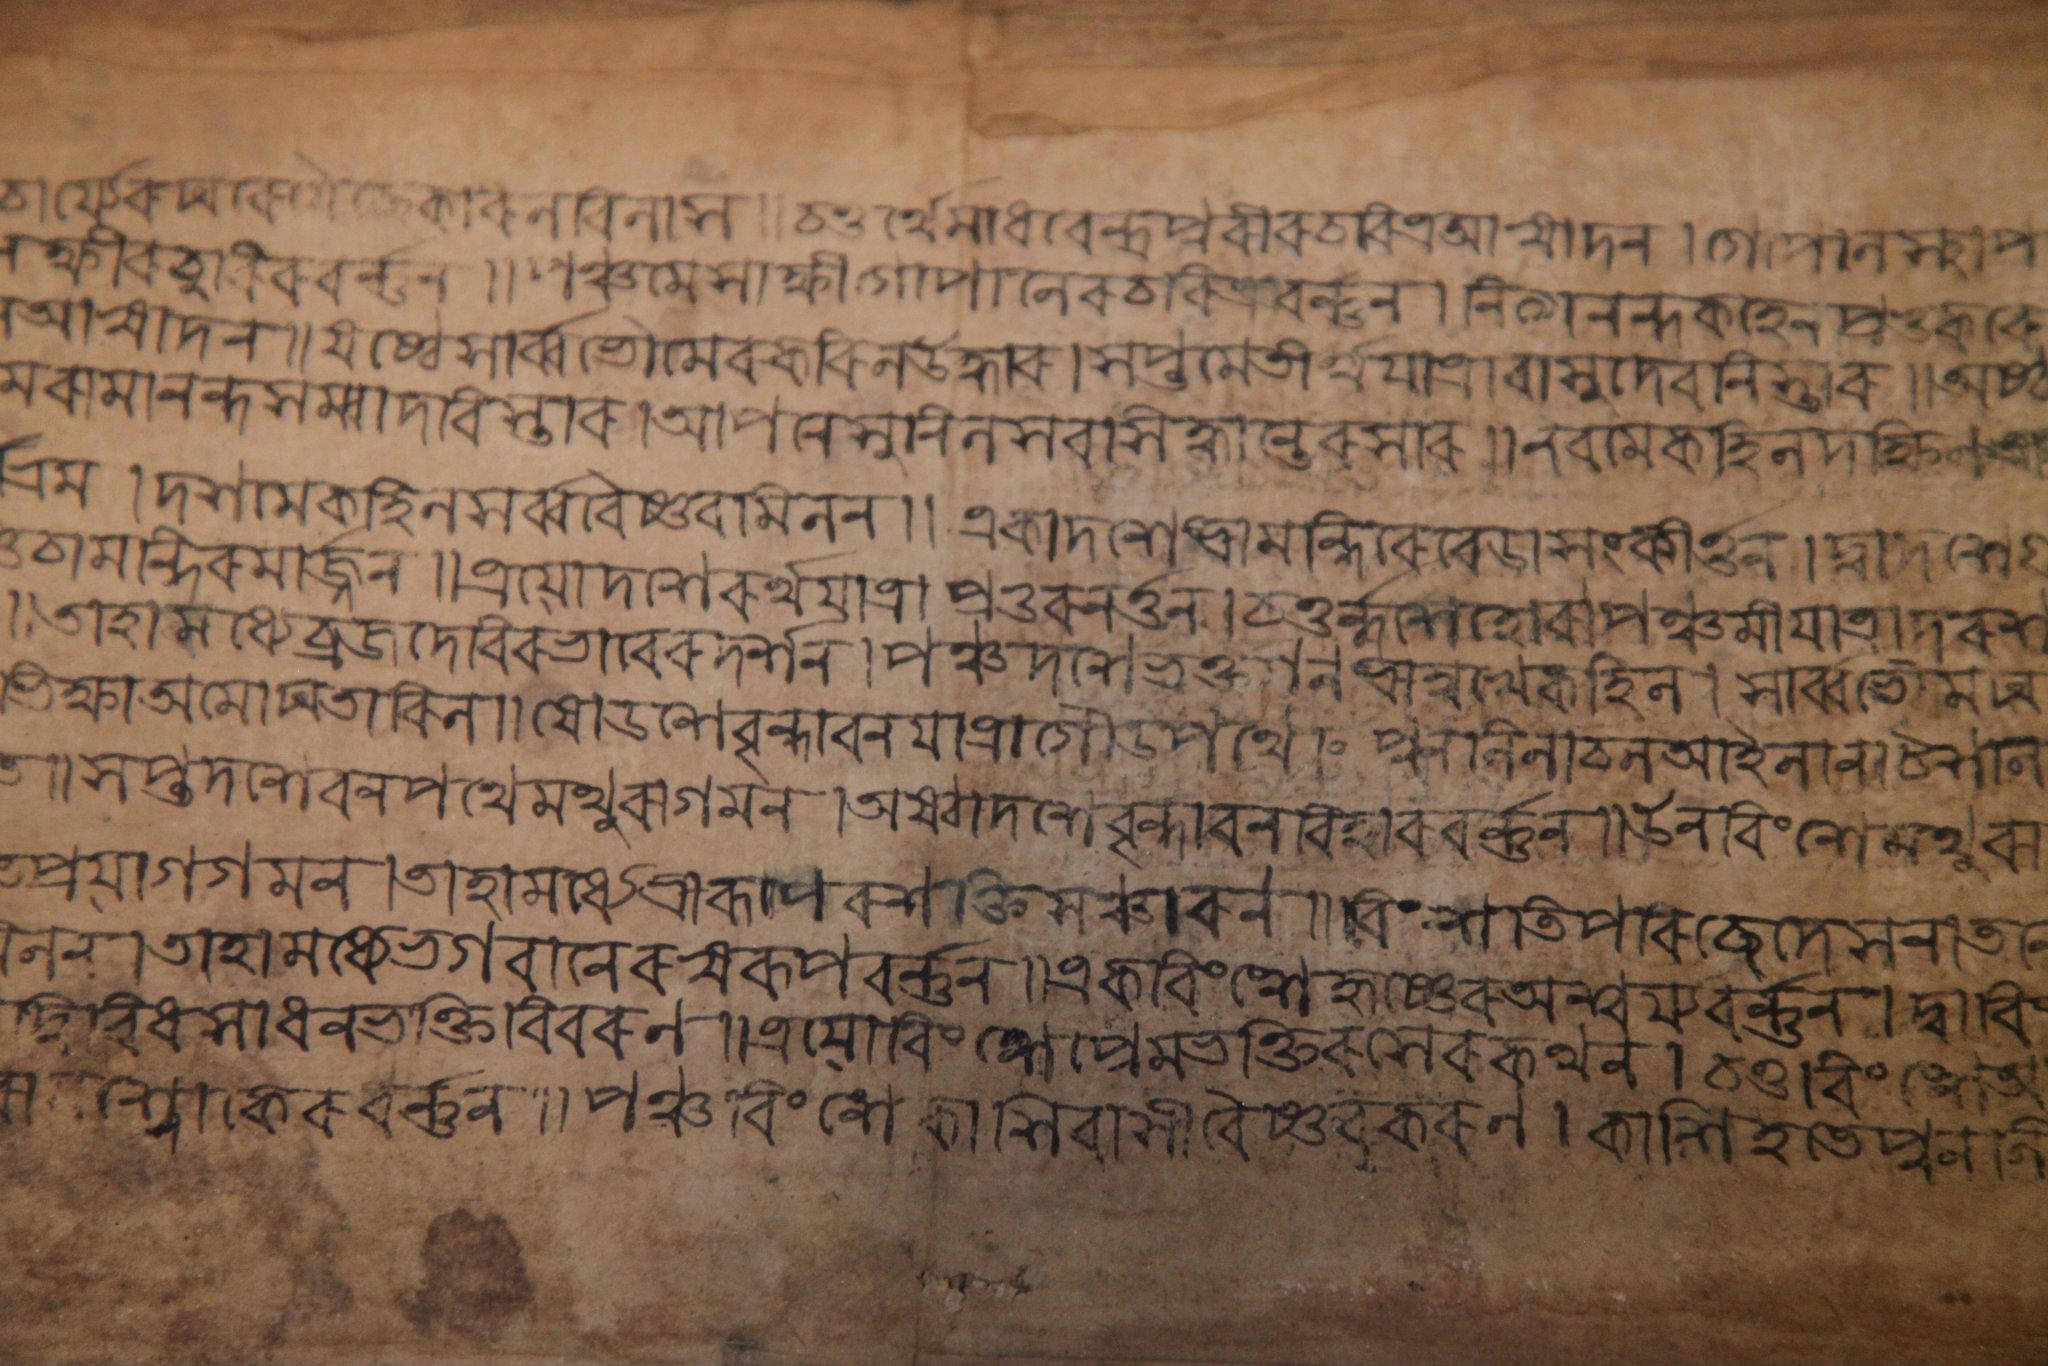 চার্য্যের ঘরে ভোজন বিলাস ॥ চতুর্থে মাধবেন্দ্রপুরীর চরিত্র আস্বাদন । গোপাল স্থাপ
ক্ষীর চুরির বর্ন্নন ॥ পঞ্চমে সাক্ষীগোপালের চরিত্র বর্ন্নন । নিত্যানন্দ কহেন প্রভু করেন
আস্বাদন ॥ ষষ্ঠে সার্ব্বভৌমের করিল উদ্ধার । সপ্তমে তীর্থযাত্রা বাসুদেব নিস্তার ॥ অষ্ট
মে রামানন্দ সম্বাদ বিস্তার । আপনে সুনিল সব সিদ্ধান্তের সার ॥ নবমে কহিল দক্ষিণ
ভ্রম । দশমে কহিল সর্ব্ব বৈষ্ণব মিলন ॥ একাদশে শ্রীমন্দিরে বেড়া সংকীর্ত্তন । দ্বাদশে গু
ণ্ডিচা মন্দির মার্জ্জন ॥ ত্রয়োদশে রথযাত্রা প্রভুর নর্ত্তন । চতুর্দ্দশে হোরা পঞ্চমী যাত্রা দরশ
॥ তাহা মধ্যে ব্রজদেবির ভাবের দর্শন । পঞ্চদশে ভক্ত গুন শ্রীমুখে কহিল । সার্ব্বভৌম ঘ
ভিক্ষা অমোঘ তারিল ॥ ষোড়শে বৃন্দাবন যাত্রা গৌড় পথে । পুন নিলাচল আইলা নাটশালা
॥ সপ্তদশে বনপথে মথুরা গমন । অষ্টাদশে বৃন্দাবন বিহার বর্ন্নন ॥ ঊনবিংশে মথুরা
প্রয়াগ গমন । তাহা মধ্যে শ্রীরূপের শক্তি সঞ্চারন ॥ বিংশতি পরিচ্ছেদে সনাতনে
মিলন । তাহা মধ্যে ভগবানের স্বরূপ বর্ন্নন ॥ একবিংশে কৃষ্ণের ঐশ্বর্য্য বর্ন্নন । দ্বাবিং
দ্বিবিধ সাধন ভক্তি বিবরন ॥ ত্রয়োবিংশে প্রেমভক্তি রসের কথন । চতুর্বিংশে আ
শ্লোকের বর্ন্নন ॥ পঞ্চবিংশে কাশিবাসী বৈষ্ণব করন । কাশি হতে পুন